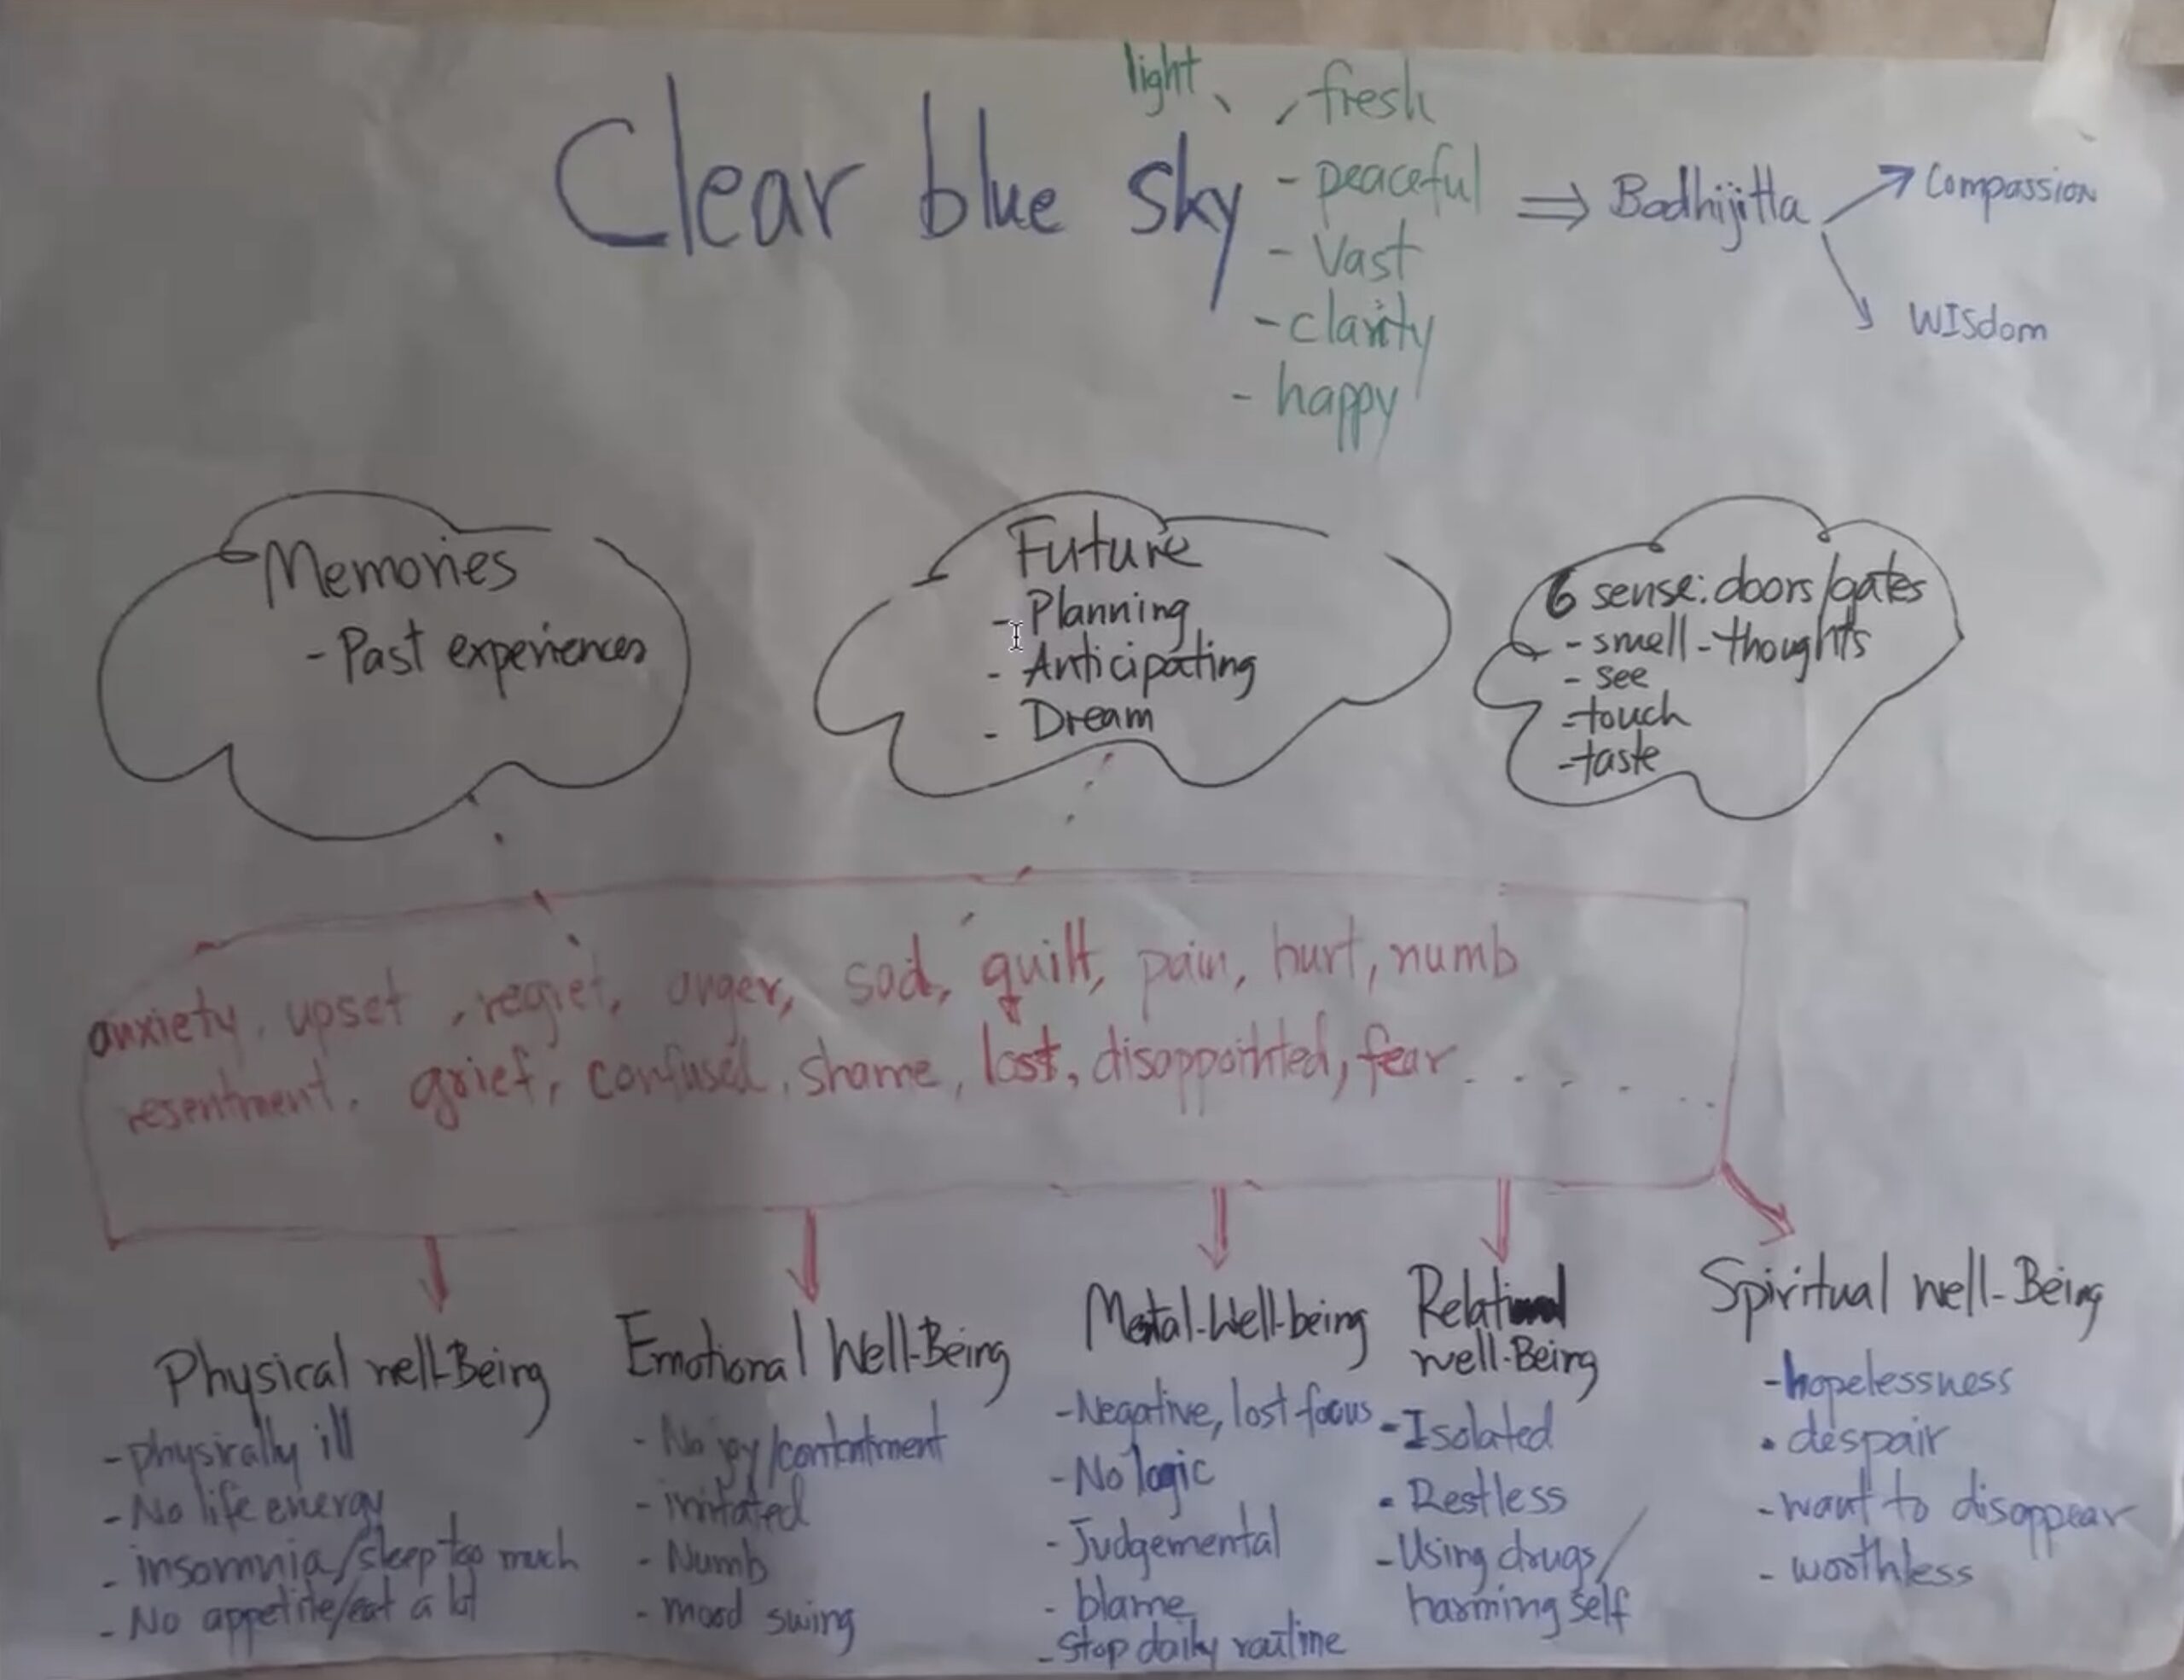 light
fresh
Clear blue sky - peaceful ⇒ Bodhijitta → Compassion
- Vast
- clarity
→ WISdom
- happy
Memories
- Past experiences
Future
- Planning
- Anticipating
- Dream
6 sense: doors/gates
- smell - thoughts
- see
- touch
- taste
anxiety, upset, regret, anger, sad, guilt, pain, hurt, numb
resentment, grief, confused, shame, lost, disappointed, fear . . . . . .
Physical well-Being
- physically ill
- No life energy
- insomnia/sleep too much
- No appetite/eat a lot
Emotional Well-Being
- No joy/contentment
- irritated
- Numb
- mood swing
Mental-Well-being
- Negative, lost focus
- No logic
- Judgemental
- blame
- Stop daily routine
Relational
well-Being
- Isolated
- Restless
- Using drugs/
harming self
Spiritual well-Being
- hopelessness
- despair
- want to disappear
- worthless